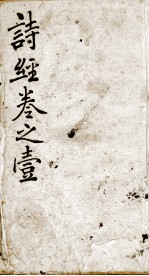 詩經卷之壹